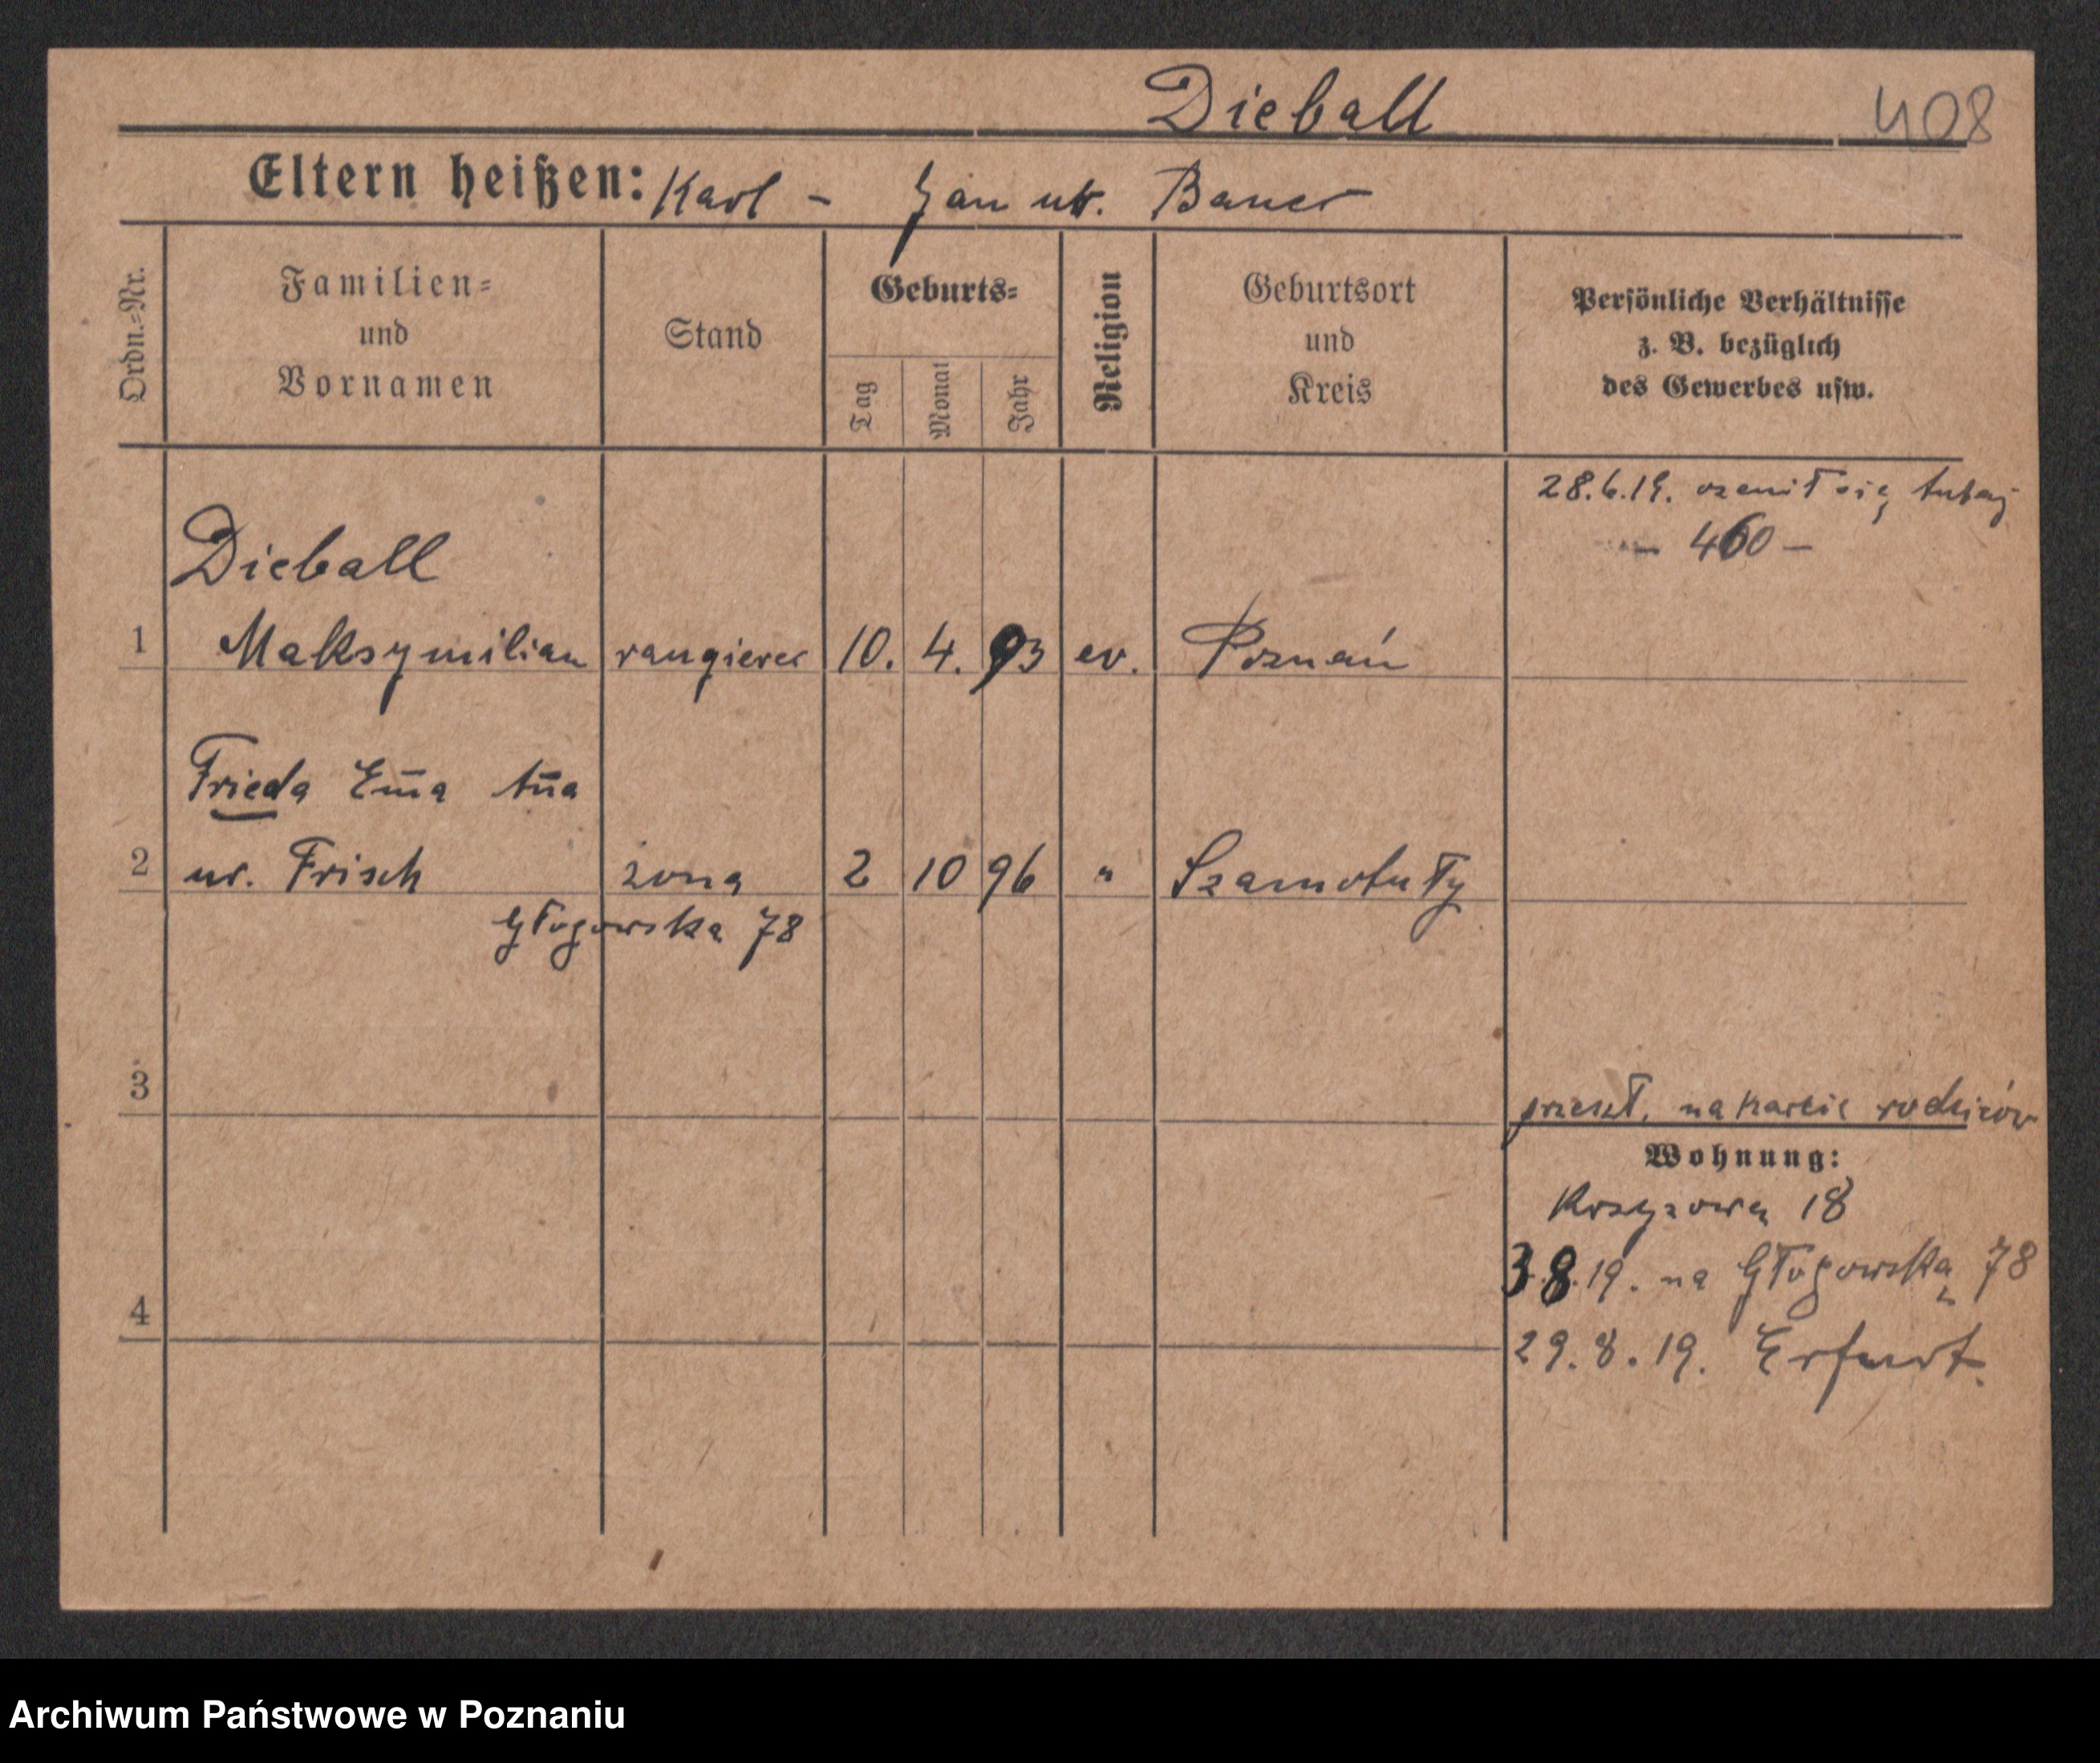 Dieball
408
Eltern heißen: Karl – Bauer
Ordn.=Nr.
Familien=
und
Vornamen
Stand
Geburts=
Tag
Monat
Jahr
Religion
Geburtsort
und
Kreis
Persönliche Verhältnisse
z. B. bezüglich
des Gewerbes usw.
28.6.19. ożenił się tutaj
– 460 –
Dieball
1 Maksymilian rangierer 10. 4. 93 ev. Poznań
Frieda Em̄a An̄a
2 ur. Frisch żona 2 10 96 " Szamotuły
Głogowska 78
3
przeszł. na karcie rodziców
Wohnung:
18
3.8.19. na Głogowską 78
4
29.8.19. Erfurt.
Archiwum Państwowe w Poznaniu